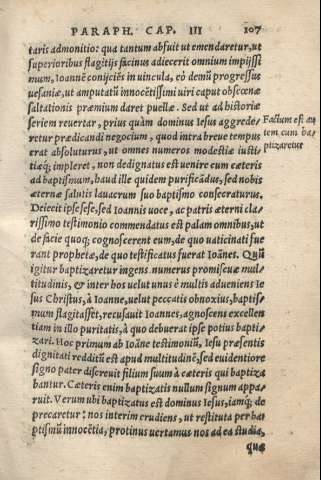 PARAPH. CAP. III 107
taris admonitio: qua tantum absuit ut emendaretur, ut
superioribus flagitijs facinus adiecerit omnium impijssi
mum, Ioannē conijciēs in uincula, eò demū progressus
uesaniæ, ut amputatū innocētissimi uiri caput obscœnæ
saltationis præmium daret puellæ. Sed ut ad historiæ
seriem reuertar, prius quàm dominus Iesus aggrede/
retur prædicandi negocium, quod intra breue tempus
erat absoluturus, ut omnes numeros modestiæ iusti/
tiæq; impleret, non dedignatus est uenire cum cæteris
ad baptismum, haud ille quidem purificādus, sed nobis
æternæ salutis lauacrum suo baptismo consecraturus.
Deiecit ipse sese, sed Ioannis uoce, ac patris æterni cla/
rissimo testimonio commendatus est palam omnibus, ut
de facie quoq; cognoscerent eum, de quo uaticinati fue
rant prophetæ, de quo testificatus fuerat Ioānes. Quū
igitur baptizaretur ingens numerus promiscuæ mul/
titudinis, & inter hos uelut unus è multis adueniens Ie
sus Christus, à Ioanne, uelut peccatis obnoxius, baptis/
mum flagitasset, recusauit Ioannes, agnoscens excellen
tiam in illo puritatis, à quo debuerat ipse potius bapti/
zari. Hoc primum ab Ioāne testimoniū, Iesu præsentis
dignitati redditū est apud multitudinē, sed euidentiore
signo pater discreuit filium suum à cæteris qui baptiza
bantur. Cæteris enim baptizatis nullum signum appa/
ruit. Verum ubi baptizatus est dominus Iesus, iamq; de
precaretur: nos interim erudiens, ut restituta per ba/
ptismū innocētia, protinus uertamus nos ad ea studia,
quæ
Factum est au
tem cum ba
ptizaretur